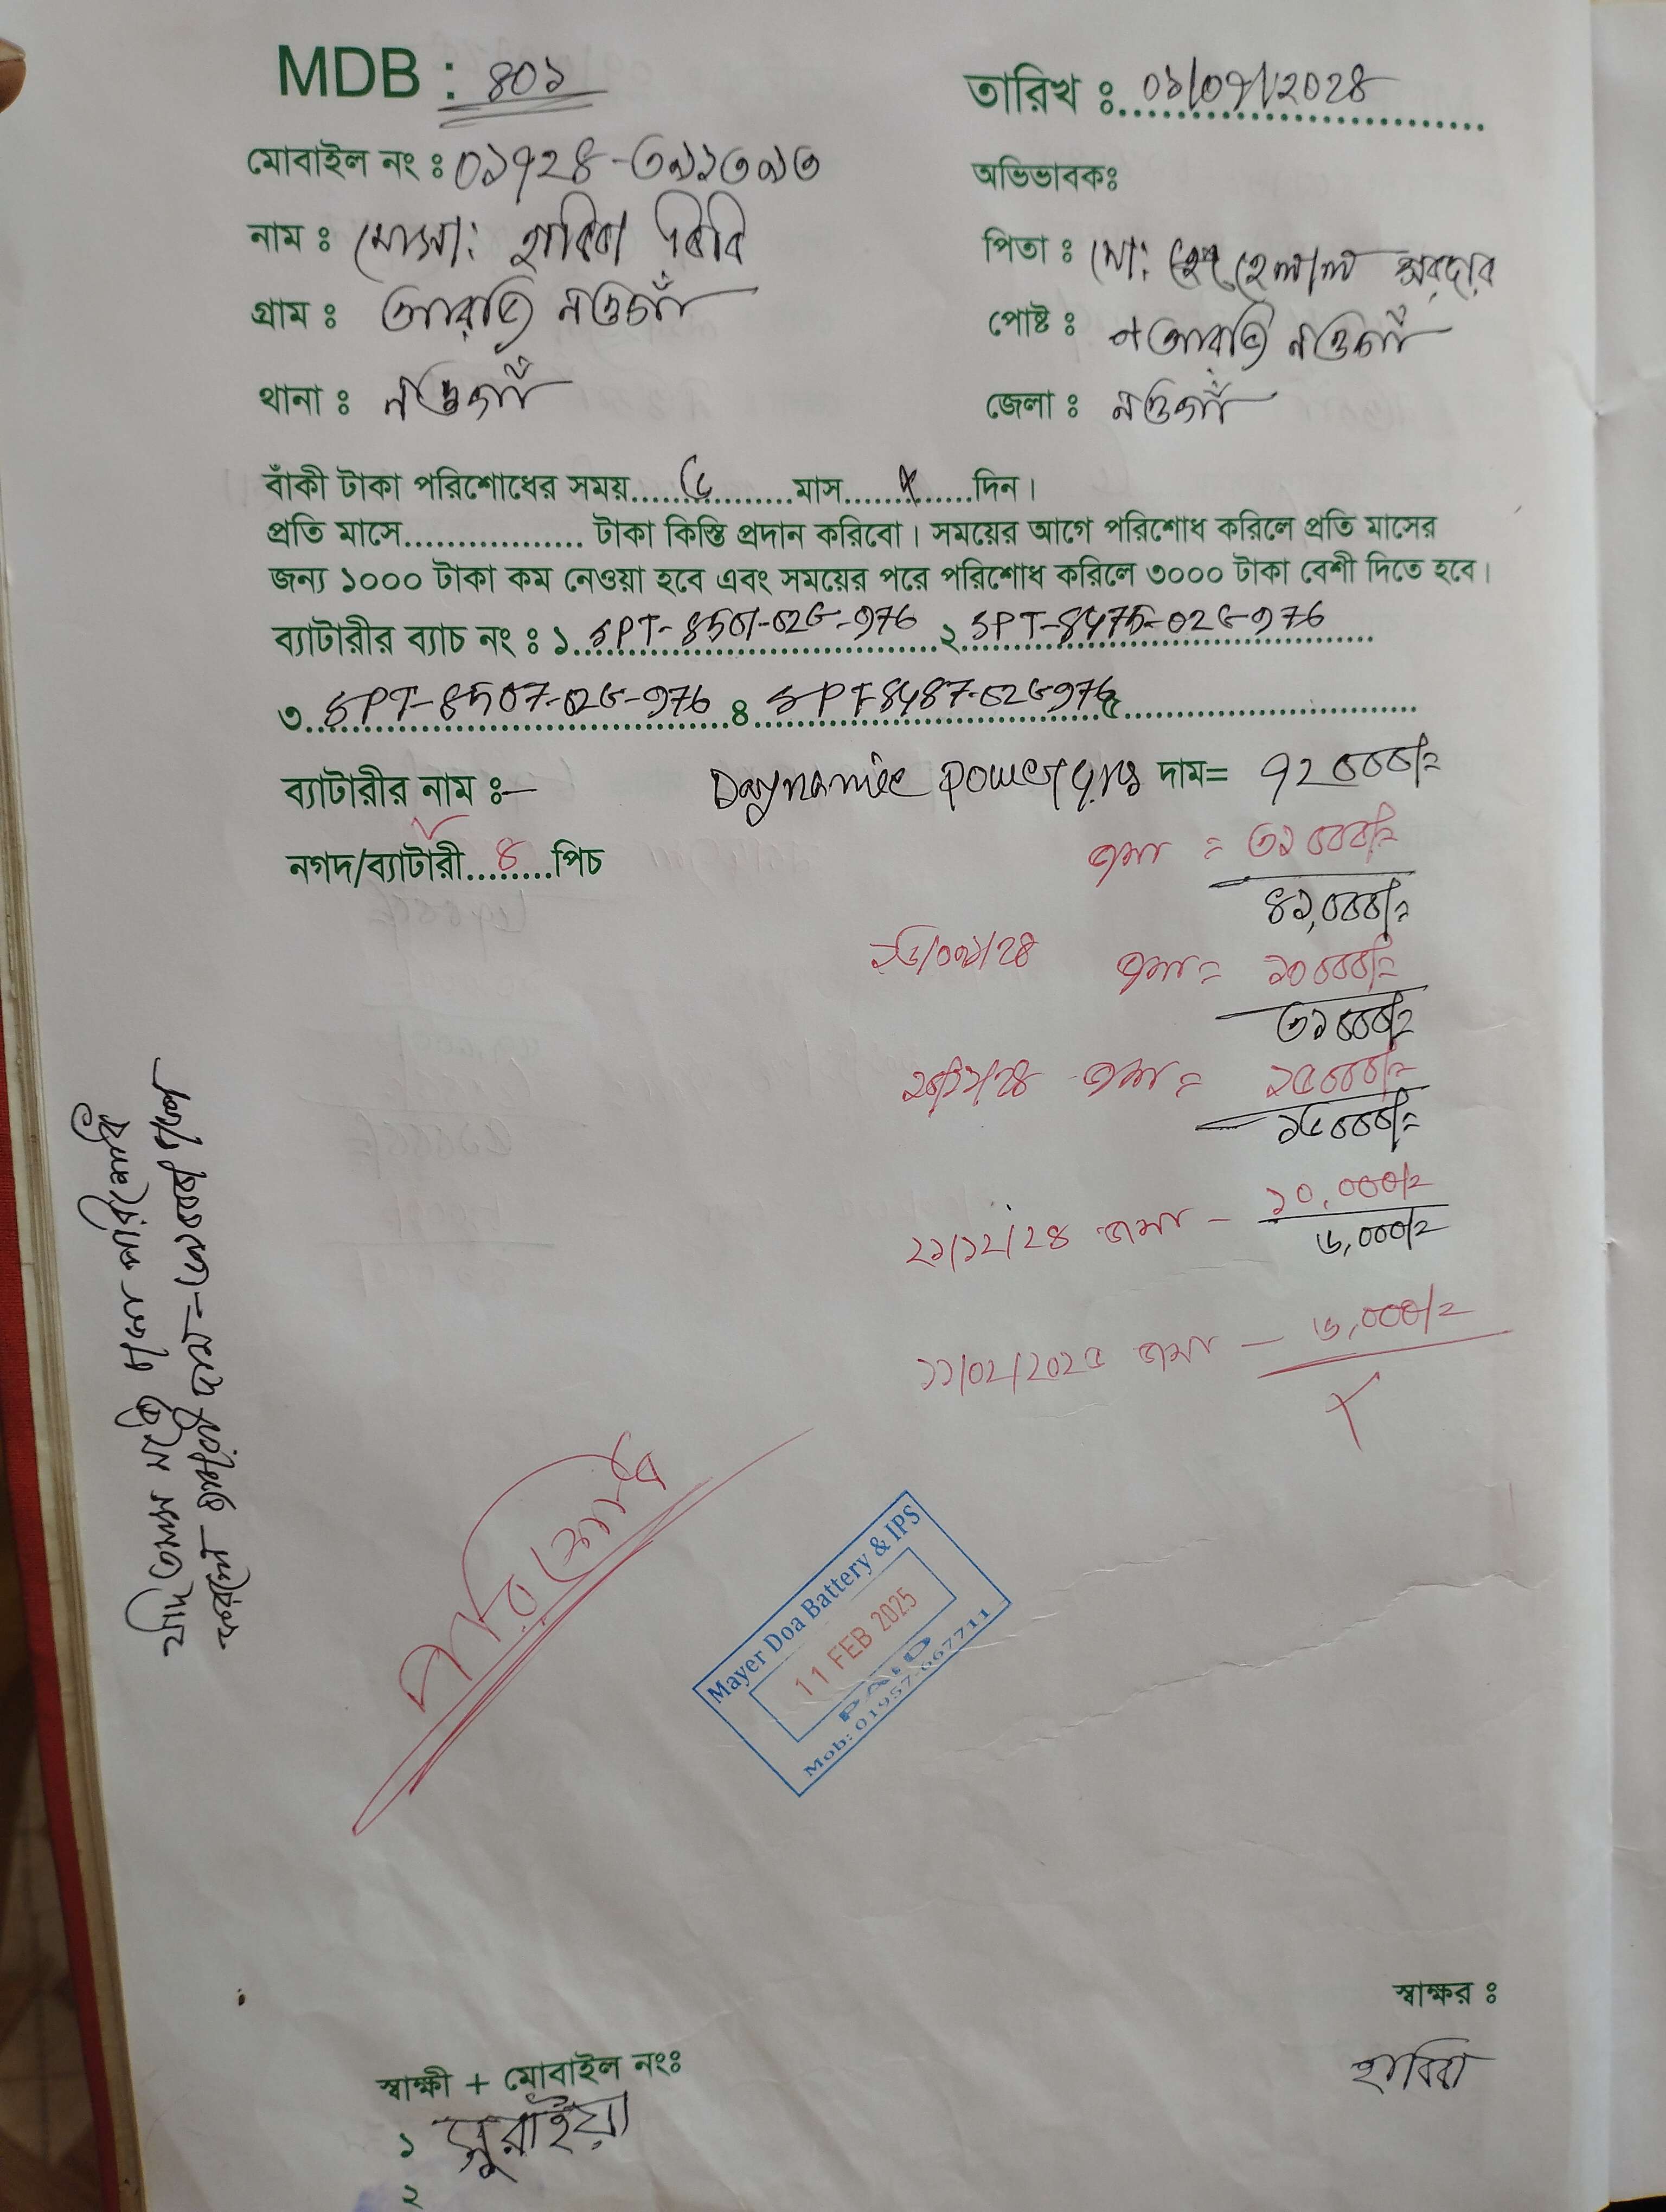 MDB : ৪০১
তারিখ ঃ ০১/০৭/২০২৪
মোবাইল নং ঃ ০১৭২৪-৩৯১৩৯৩
অভিভাবকঃ
নাম ঃ মোসা: হাবিবা বিবি
পিতা ঃ মো: হেলাল সরদার
গ্রাম ঃ আরজি নওগাঁ
পোষ্ট ঃ আরজি নওগাঁ
থানা ঃ নওগাঁ
জেলা ঃ নওগাঁ
বাঁকী টাকা পরিশোধের সময়.....৫.........মাস.....×......দিন।
প্রতি মাসে................. টাকা কিস্তি প্রদান করিবো। সময়ের আগে পরিশোধ করিলে প্রতি মাসের
জন্য ১০০০ টাকা কম নেওয়া হবে এবং সময়ের পরে পরিশোধ করিলে ৩০০০ টাকা বেশী দিতে হবে।
ব্যাটারীর ব্যাচ নং ঃ ১. SPT-8501-02G-976 ২. SPT-8475-02G-976
৩. SPT-8507-02G-976 ৪ SPT-8487-02G976 ৫
ব্যাটারীর নাম ঃ- Daynamic Power দাম= ৭২০০০/=
নগদ/ব্যাটারী...৪...পিচ
জমা = ৩১০০০/=
৪১,০০০/=
জমা = ১০০০০/=
৩১০০০/=
জমা = ১৫০০০/=
১৬০০০/=
২১/১২/২৪ জমা - ১০,০০০/=
৬,০০০/=
১১/০২/২০২৫ জমা - ৬,০০০/=
×
যদি ৫মাস মধ্যে পরিশোধ
করলে দাম =
পরিশোধ
Mayer Doa Battery & IPS
11 FEB 2025
PAID
Mob: 01957-667711
স্বাক্ষর ঃ
হাবিবা
স্বাক্ষী + মোবাইল নংঃ
১ সুরাইয়া
২